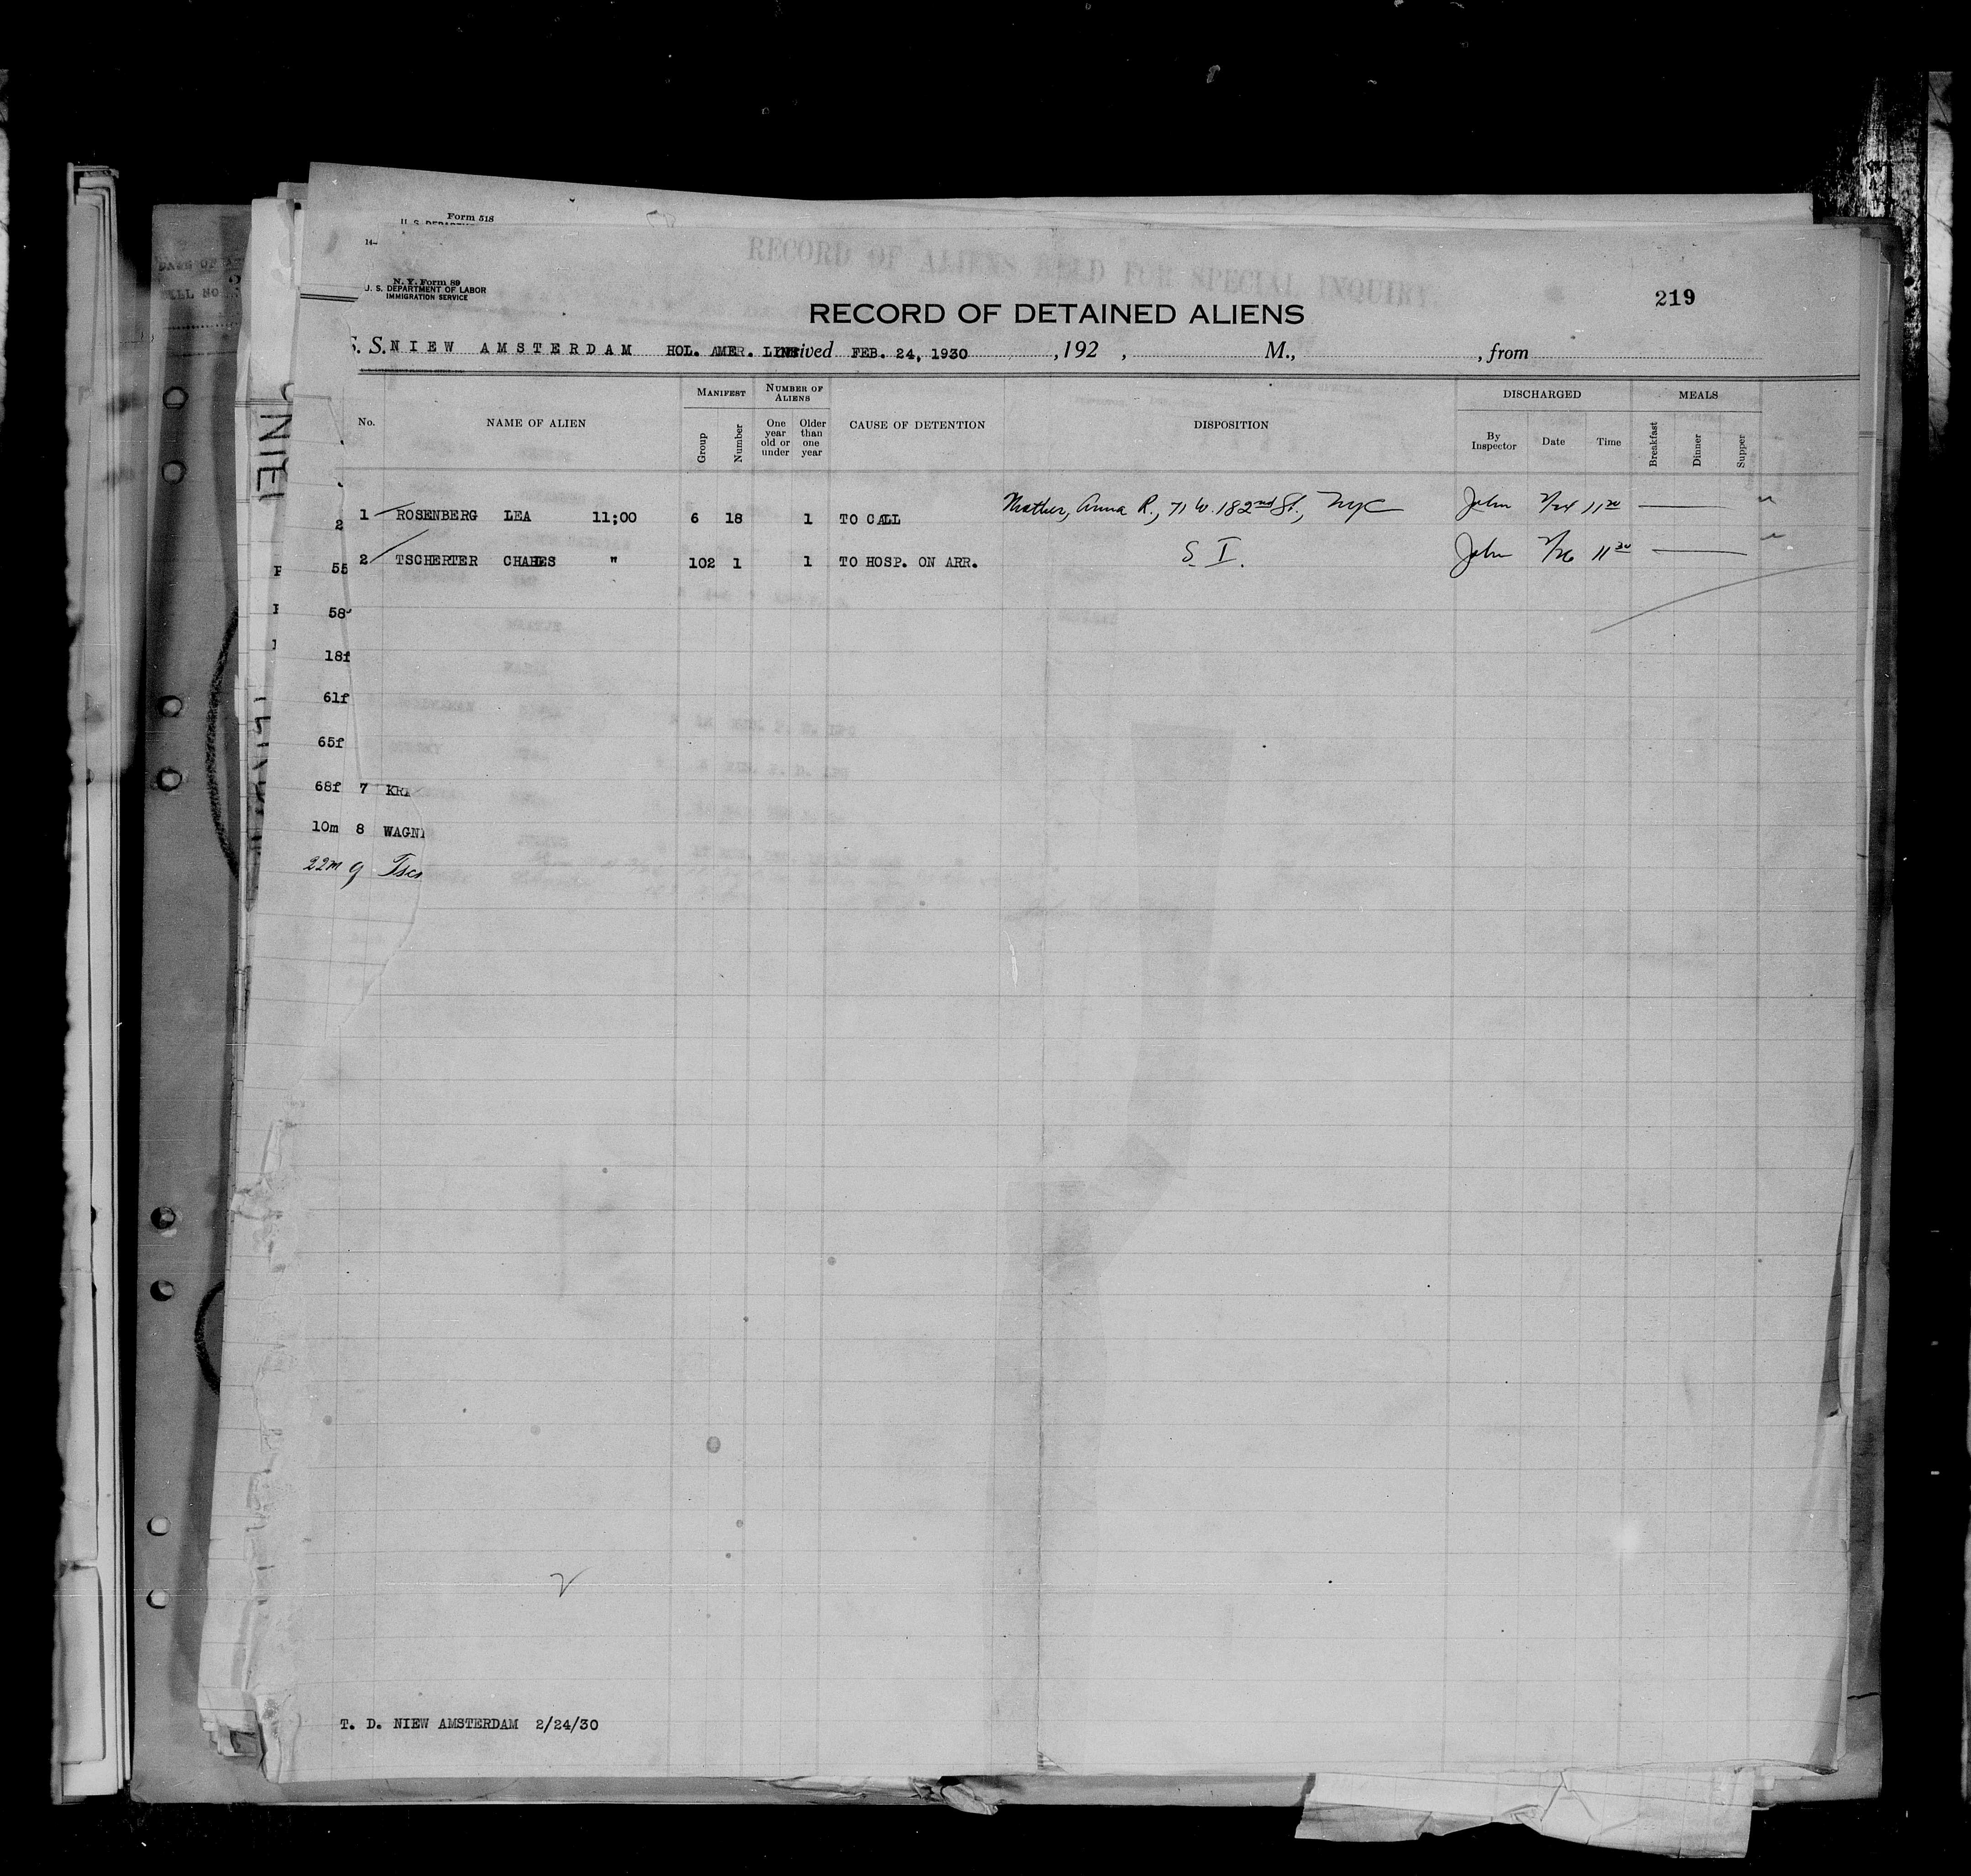 Form 518
N. Y. Form 89
U. S. DEPARTMENT OF LABOR
IMMIGRATION SERVICE
RECORD OF ALIENS HELD FOR SPECIAL INQUIRY
219
RECORD OF DETAINED ALIENS
S. S. NIEW AMSTERDAM HOL. AMER. LINE FEB. 24, 1930 , 192 , M., , from
No. NAME OF ALIEN MANIFEST Group Number NUMBER OF ALIENS One year old or under Older than one year CAUSE OF DETENTION DISPOSITION DISCHARGED By Inspector Date Time MEALS Breakfast Dinner Supper
1 ROSENBERG LEA 11;00 6 18 1 TO CALL Mother, Anna R., 71 W. 182nd St., NYC John 2/24 11 20
2 TSCHERTER " 102 1 1 TO HOSP. ON ARR. S. I. John 2/26 11 20
2
55
58
18f
61f
65f
68f 7 KR
10m 8 WAGN
22m 9 Tsc
T. D. NIEW AMSTERDAM 2/24/30